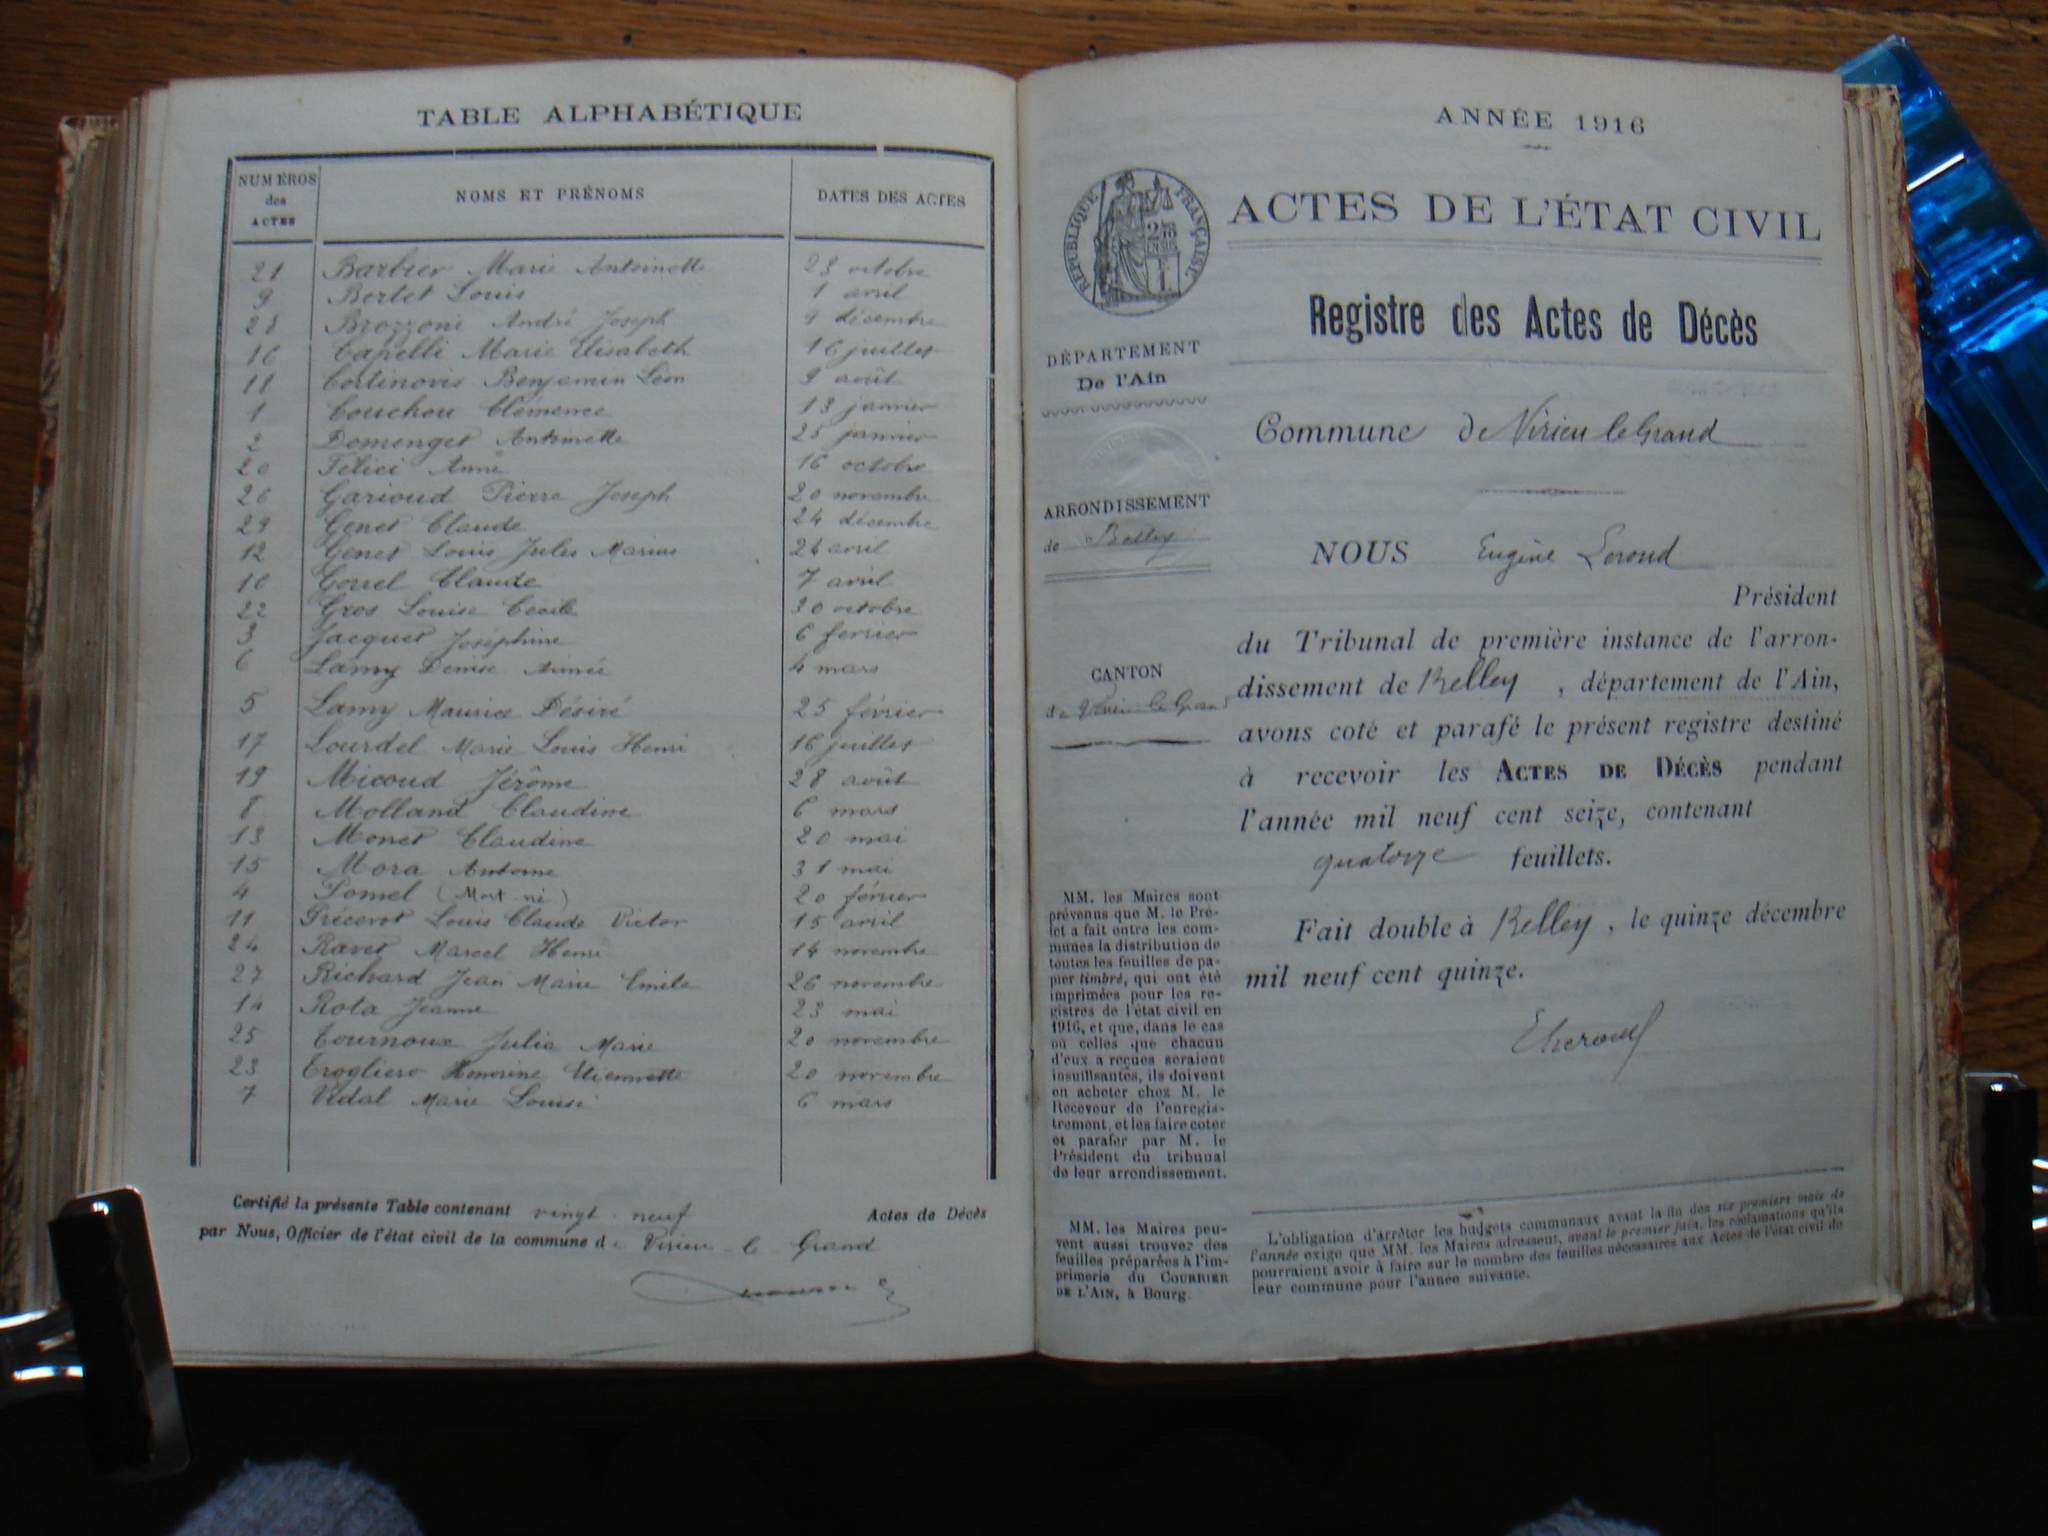 TABLE ALPHABÉTIQUE
NUMÉROS des ACTES
NOMS ET PRÉNOMS
DATES DES ACTES
21 Barbier Marie Antoinette 23 octobre
9 Bertet Louis 1 avril
28 Brozzoni André Joseph 9 décembre
16 Capelli Marie Elisabeth 16 juillet
18 Cortinovis Benjamin Léon 9 août
1 Couchou Clémence 13 janvier
2 Domenget Antoinette 25 janvier
20 Felici Anne 16 octobre
26 Garioud Pierre Joseph 20 novembre
29 Genet Claude 24 décembre
12 Genet Louis Jules Marius 24 avril
10 Gorrel Claude 7 avril
22 Gros Louise Cécile 30 octobre
3 Jacquet Joséphine 6 fevrier
6 Lamy Denise Aimée 4 mars
5 Lamy Maurice Désiré 25 février
17 Lourdel Marie Louis Henri 16 juillet
19 Micoud Jérôme 28 août
8 Molland Claudine 6 mars
13 Monet Claudine 20 mai
15 Mora Antoine 31 mai
4 Pomel (Mort-né) 20 février
11 Louis Claude Victor 15 avril
24 Ravet Marcel Henri 14 novembre
27 Richard Jean Marie Emile 26 novembre
14 Rota Jeanne 23 mai
25 Tournoux Julie Marie 20 novembre
23 Trogliero Honorine Etiennette 20 novembre
7 Vidal Marie Louise 6 mars
Certifié la présente Table contenant vingt-neuf Actes de Décès
par Nous, Officier de l'état civil de la commune de Virieu-le-Grand
ANNÉE 1916
RÉPUBLIQUE FRANÇAISE
ACTES DE L'ÉTAT CIVIL
Registre des Actes de Décès
DÉPARTEMENT
De l'Ain
Commune de Virieu le Grand
ARRONDISSEMENT
de Belley
NOUS Eugène
Président
du Tribunal de première instance de l'arron-
CANTON
de Virieu-le-Grand
dissement de Belley, département de l'Ain,
avons coté et parafé le présent registre destiné
à recevoir les ACTES DE DÉCÈS pendant
l'année mil neuf cent seize, contenant
quatorze feuillets.
Fait double à Belley, le quinze décembre
mil neuf cent quinze.
MM. les Maires sont
prévenus que M. le Pré-
fet a fait entre les com-
munes la distribution de
toutes les feuilles de pa-
pier timbré, qui ont été
imprimées pour les re-
gistres de l'état civil en
1916, et que, dans le cas
où celles que chacun
d'eux a reçues seraient
insuffisantes, ils doivent
en acheter chez M. le
Receveur de l'enregis-
trement, et les faire coter
et parafer par M. le
Président du tribunal
de leur arrondissement.
MM. les Maires peu-
vent aussi trouver des
feuilles préparées à l'im-
primerie du COURRIER
DE L'AIN, à Bourg.
L'obligation d'arrêter les budgets communaux avant la fin des six premiers mois de
l'année exige que MM. les Maires adressent, avant le premier juin, les réclamations qu'ils
pourraient avoir à faire sur le nombre des feuilles nécessaires aux Actes de l'état civil de
leur commune pour l'année suivante.